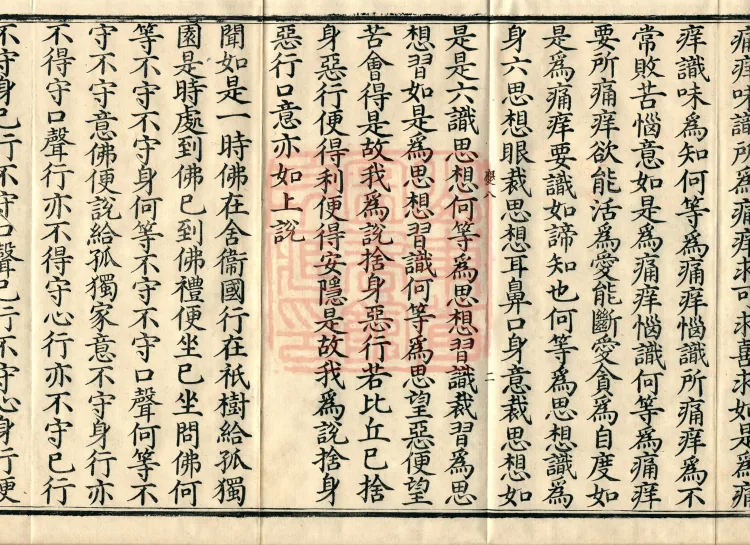 痛痒味識所為痛痒求可求喜求如是為痛
痒識味為知何等為痛痒惱識所痛痒為不
常敗苦惱意如是為痛痒惱識何等為痛痒
要所痛痒欲能活為愛能斷愛貪為自度如
是為痛痒要識如諦知也何等為思想識為
身六思想眼裁思想耳鼻口身意裁思想如
是是六識思想何等為思想習識裁習為思
想習如是為思想習識何等為思望惡便望
苦會得是故我為說捨身惡行若比丘已捨
身惡行便得利便得安隱是故我為說捨身
惡行口意亦如上說
聞如是一時佛在舍衞國行在祇樹給孤獨
園是時處到佛已到佛禮便坐已坐問佛何
等不守不守身何等不守不守口聲何等不
守不守意佛便說給孤獨家意不守身行亦
不得守口聲行亦不得守心行亦不守已行
不守身已行不守口聲已行不守心身行便